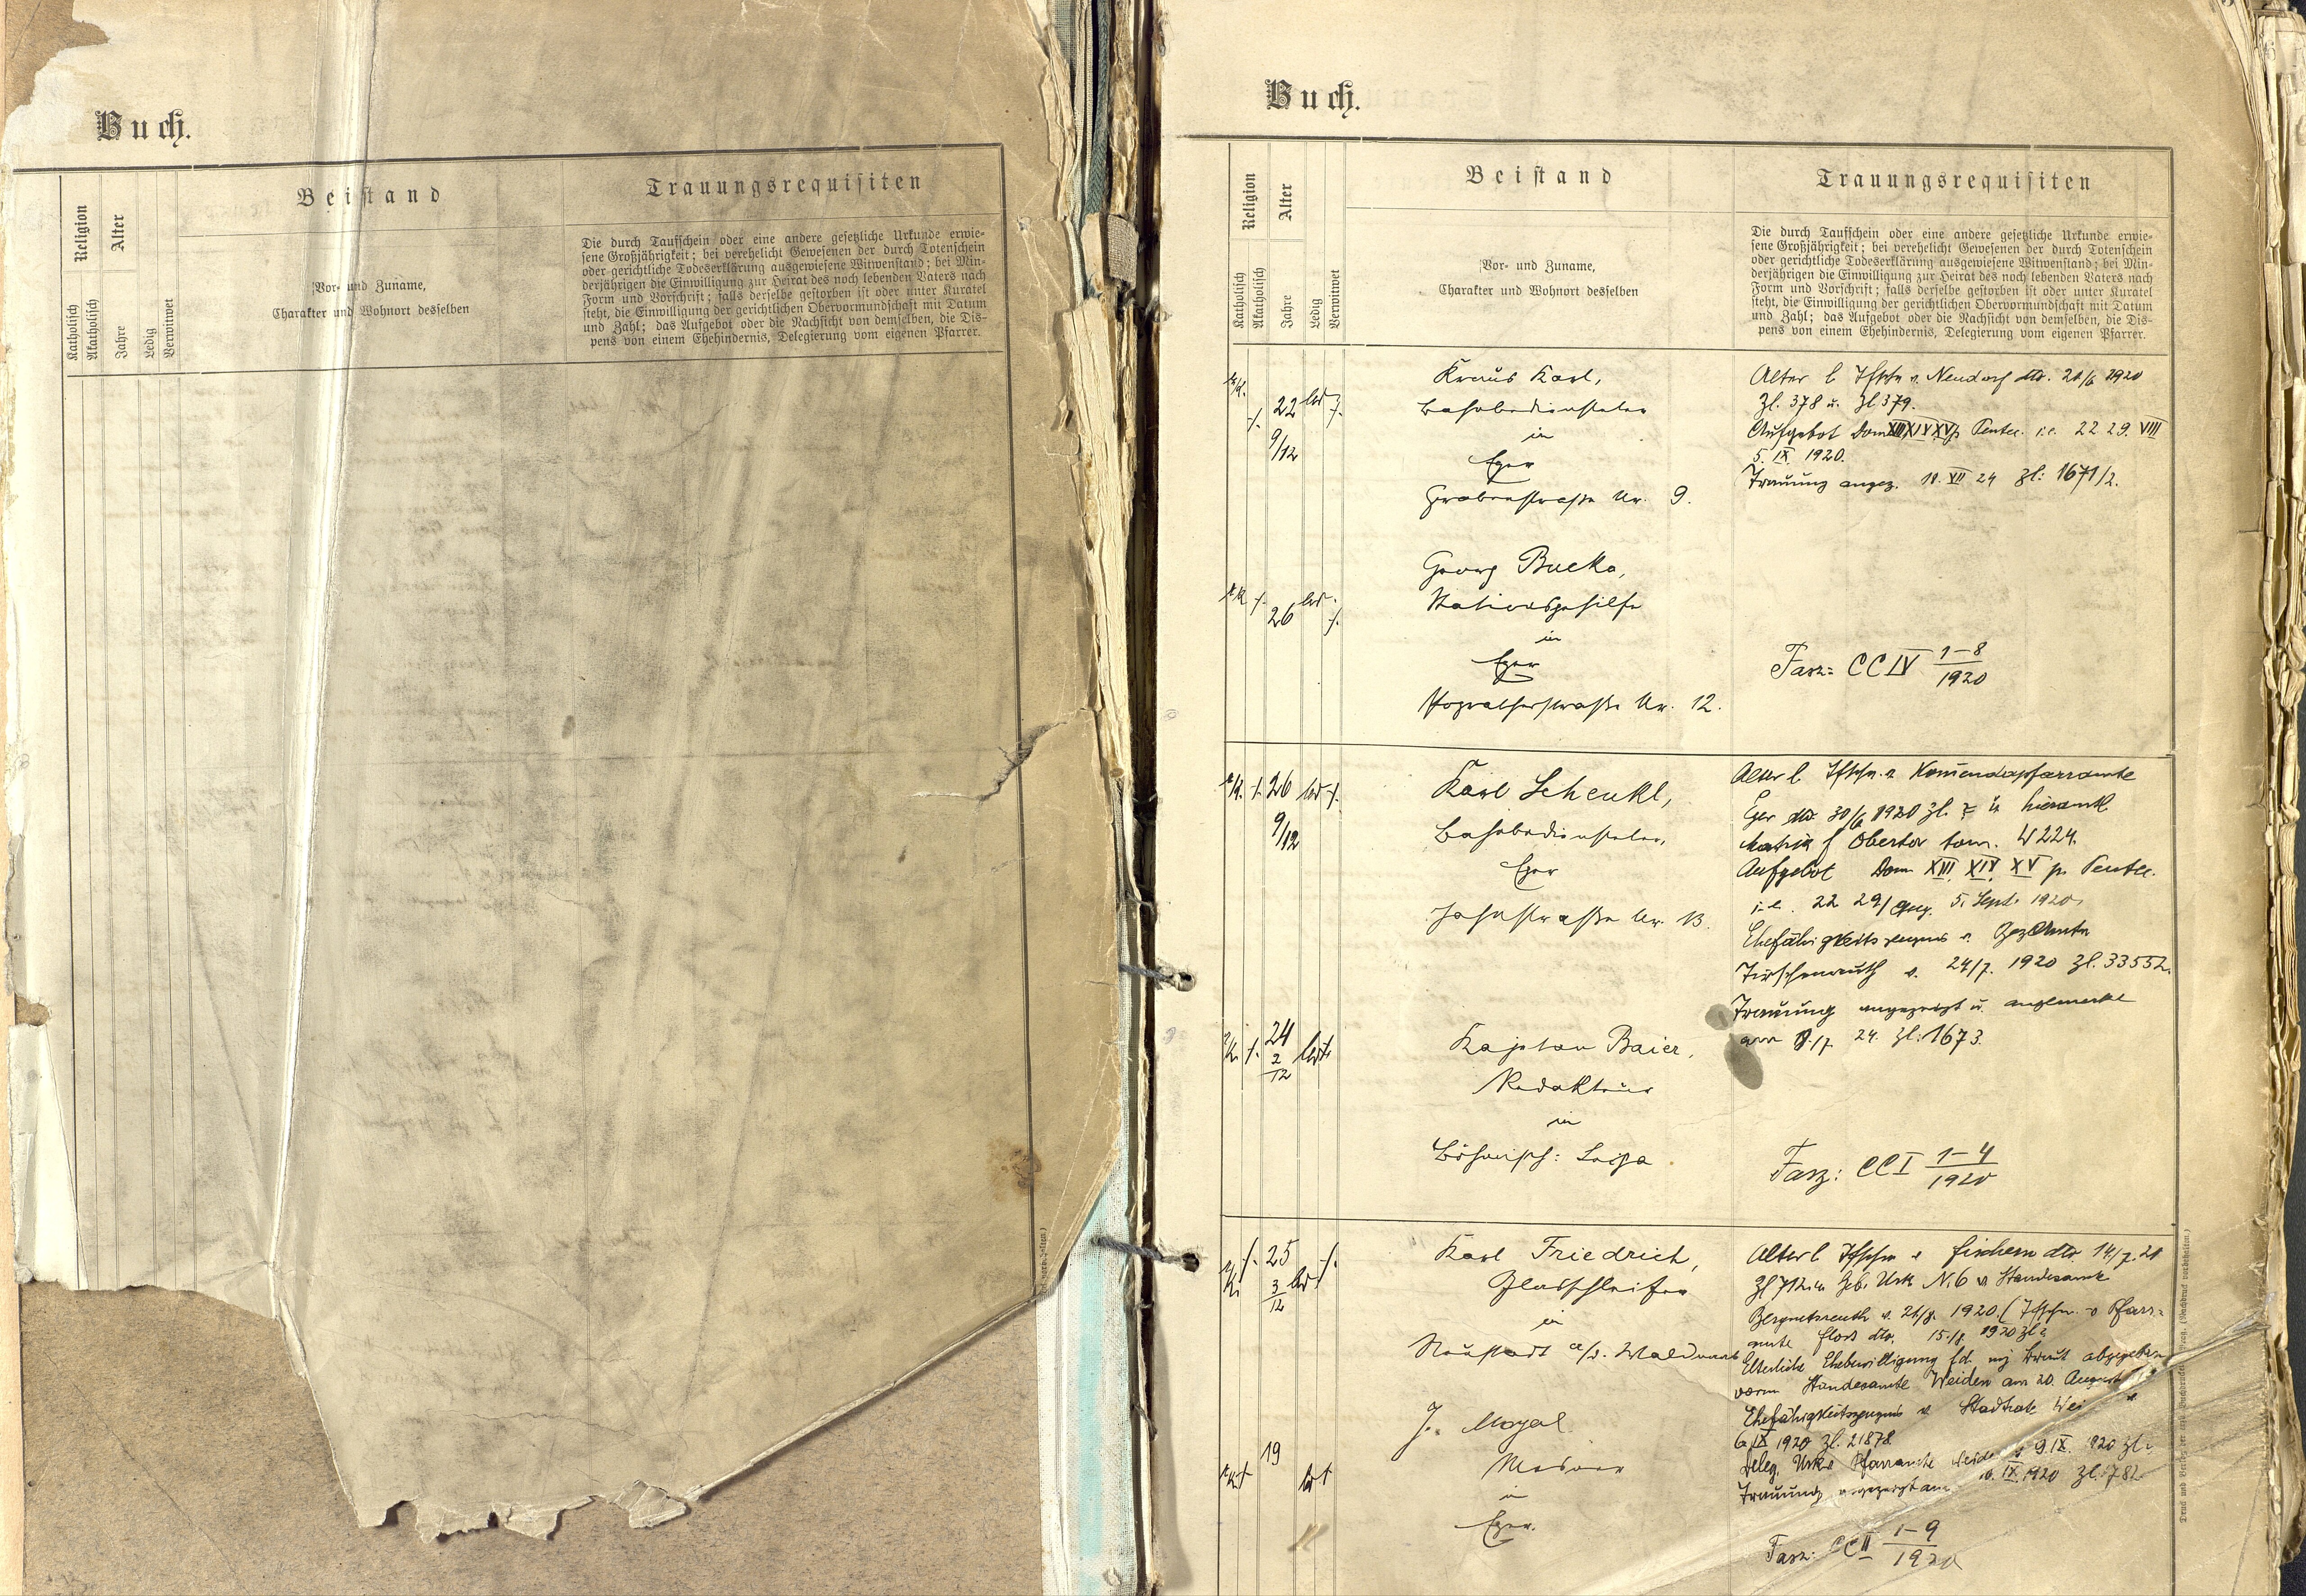 Buch.
Religion
Alter
Beistand
Trauungsrequisiten
Katholisch
Akatholisch
Jahre
Ledig
Verwitwet
Vor- und Zuname,
Charakter und Wohnort desselben
Die durch Taufschein oder eine andere gesetzliche Urkunde erwie-
sene Großjährigkeit; bei verehelicht Gewesenen der durch Totenschein
oder gerichtliche Todeserklärung ausgewiesene Witwenstand; bei Min-
derjährigen die Einwilligung zur Heirat des noch lebenden Vaters nach
Form und Vorschrift; falls derselbe gestorben ist oder unter Kuratel
steht, die Einwilligung der gerichtlichen Obervormundschaft mit Datum
und Zahl; das Aufgebot oder die Nachsicht von demselben, die Dis-
pens von einem Ehehindernis, Delegierung vom eigenen Pfarrer.
Buch.
Religion
Alter
Beistand
Trauungsrequisiten
Katholisch
Akatholisch
Jahre
Ledig
Verwitwet
Vor- und Zuname,
Charakter und Wohnort desselben
Die durch Taufschein oder eine andere gesetzliche Urkunde erwie-
sene Großjährigkeit; bei verehelicht Gewesenen der durch Totenschein
oder gerichtliche Todeserklärung ausgewiesene Witwenstand; bei Min-
derjährigen die Einwilligung zur Heirat des noch lebenden Vaters nach
Form und Vorschrift; falls derselbe gestorben ist oder unter Kuratel
steht, die Einwilligung der gerichtlichen Obervormundschaft mit Datum
und Zahl; das Aufgebot oder die Nachsicht von demselben, die Dis-
pens von einem Ehehindernis, Delegierung vom eigenen Pfarrer.
rk. /. 22 led /.
9/12
Kraus Karl,
Bahnbediensteter
in
Eger
Grabenstraße Nr. 9.
Alter l Tfschn v. Neudorf dto. 21/6 1920
Zl. 378 u. Zl 379.
Aufgebot Dom XIII XIV XV p Pentec. i.e. 22 29. VIII
5. IX. 1920.
Trauung angez. 18. VII 24 Zl: 1671/2.
rk /. 26 led. /.
Georg Bucka,
Stationsgehilfe
in
Eger
Nr. 12.
Fasz: CCIV 1-8
1920
rk. /. 26 led /.
9/12
Karl Schenkl,
Bahnbediensteter,
Eger
Jahnstraße Nr. 13.
Alter l Tfschn. v Komendapfarramte
Eger dto. 30/6 1920 Zl. u hieramtl
Matrik f Obertor tom. 224.
Aufgebot Dom XIII XIV XV p. Pentec.
i.e. 22 29/Aug. 5. Sept. 1920.
Ehefähigkeitszeugnis v. BezAmte
Tirschenreuth v. 24/7. 1920 Zl. 33552.
Trauung angezeigt u. angemerkt
am 24. Zl: 1673.
rk /. 24 led /.
2/12
Kajetan Baier,
Redakteur
in
Böhmisch: Leipa
Fasz: CCI 1-4
1920
rk /. 25 led /.
3/12
Karl Friedrich,
Glasschleifer
in
Neustadt a/d. Waldnaab
Alter l Tfschn v Fischern dto. 14/7. 20
Zl 712. u Geb. Urk N. 6 v Standesamte
v. 1920. (Tfschn. v Pfarr-
amte Floss dto. 1920 Zl
Elterliche Ehebewilligung fd. mj Braut abgegeben
vorm Standesamte Weiden am 20. August
Ehefähigkeitszeugnis v. Stadtrate Wei
6 IX 1920 Zl. 21878
Deleg. Urk v Pfarramte Weiden v 9. IX. 1920 Zl
Trauung angezeigt am IX. 1920 Zl. 1782
rk / 19 led /
J. Mayal
in
Eger.
Fasz: CCII 1-9
1920